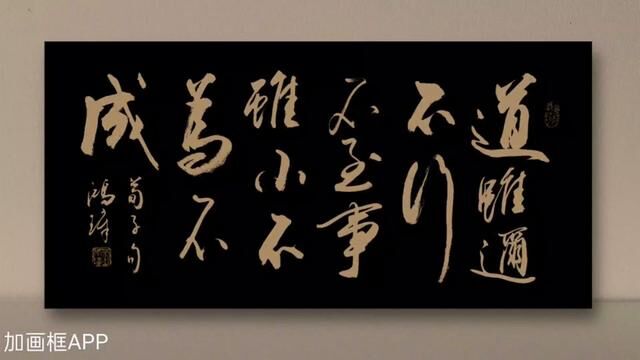 道雖邇
不行
不至事
雖小不
為不
成
荀子句
鴻璋
加画框APP